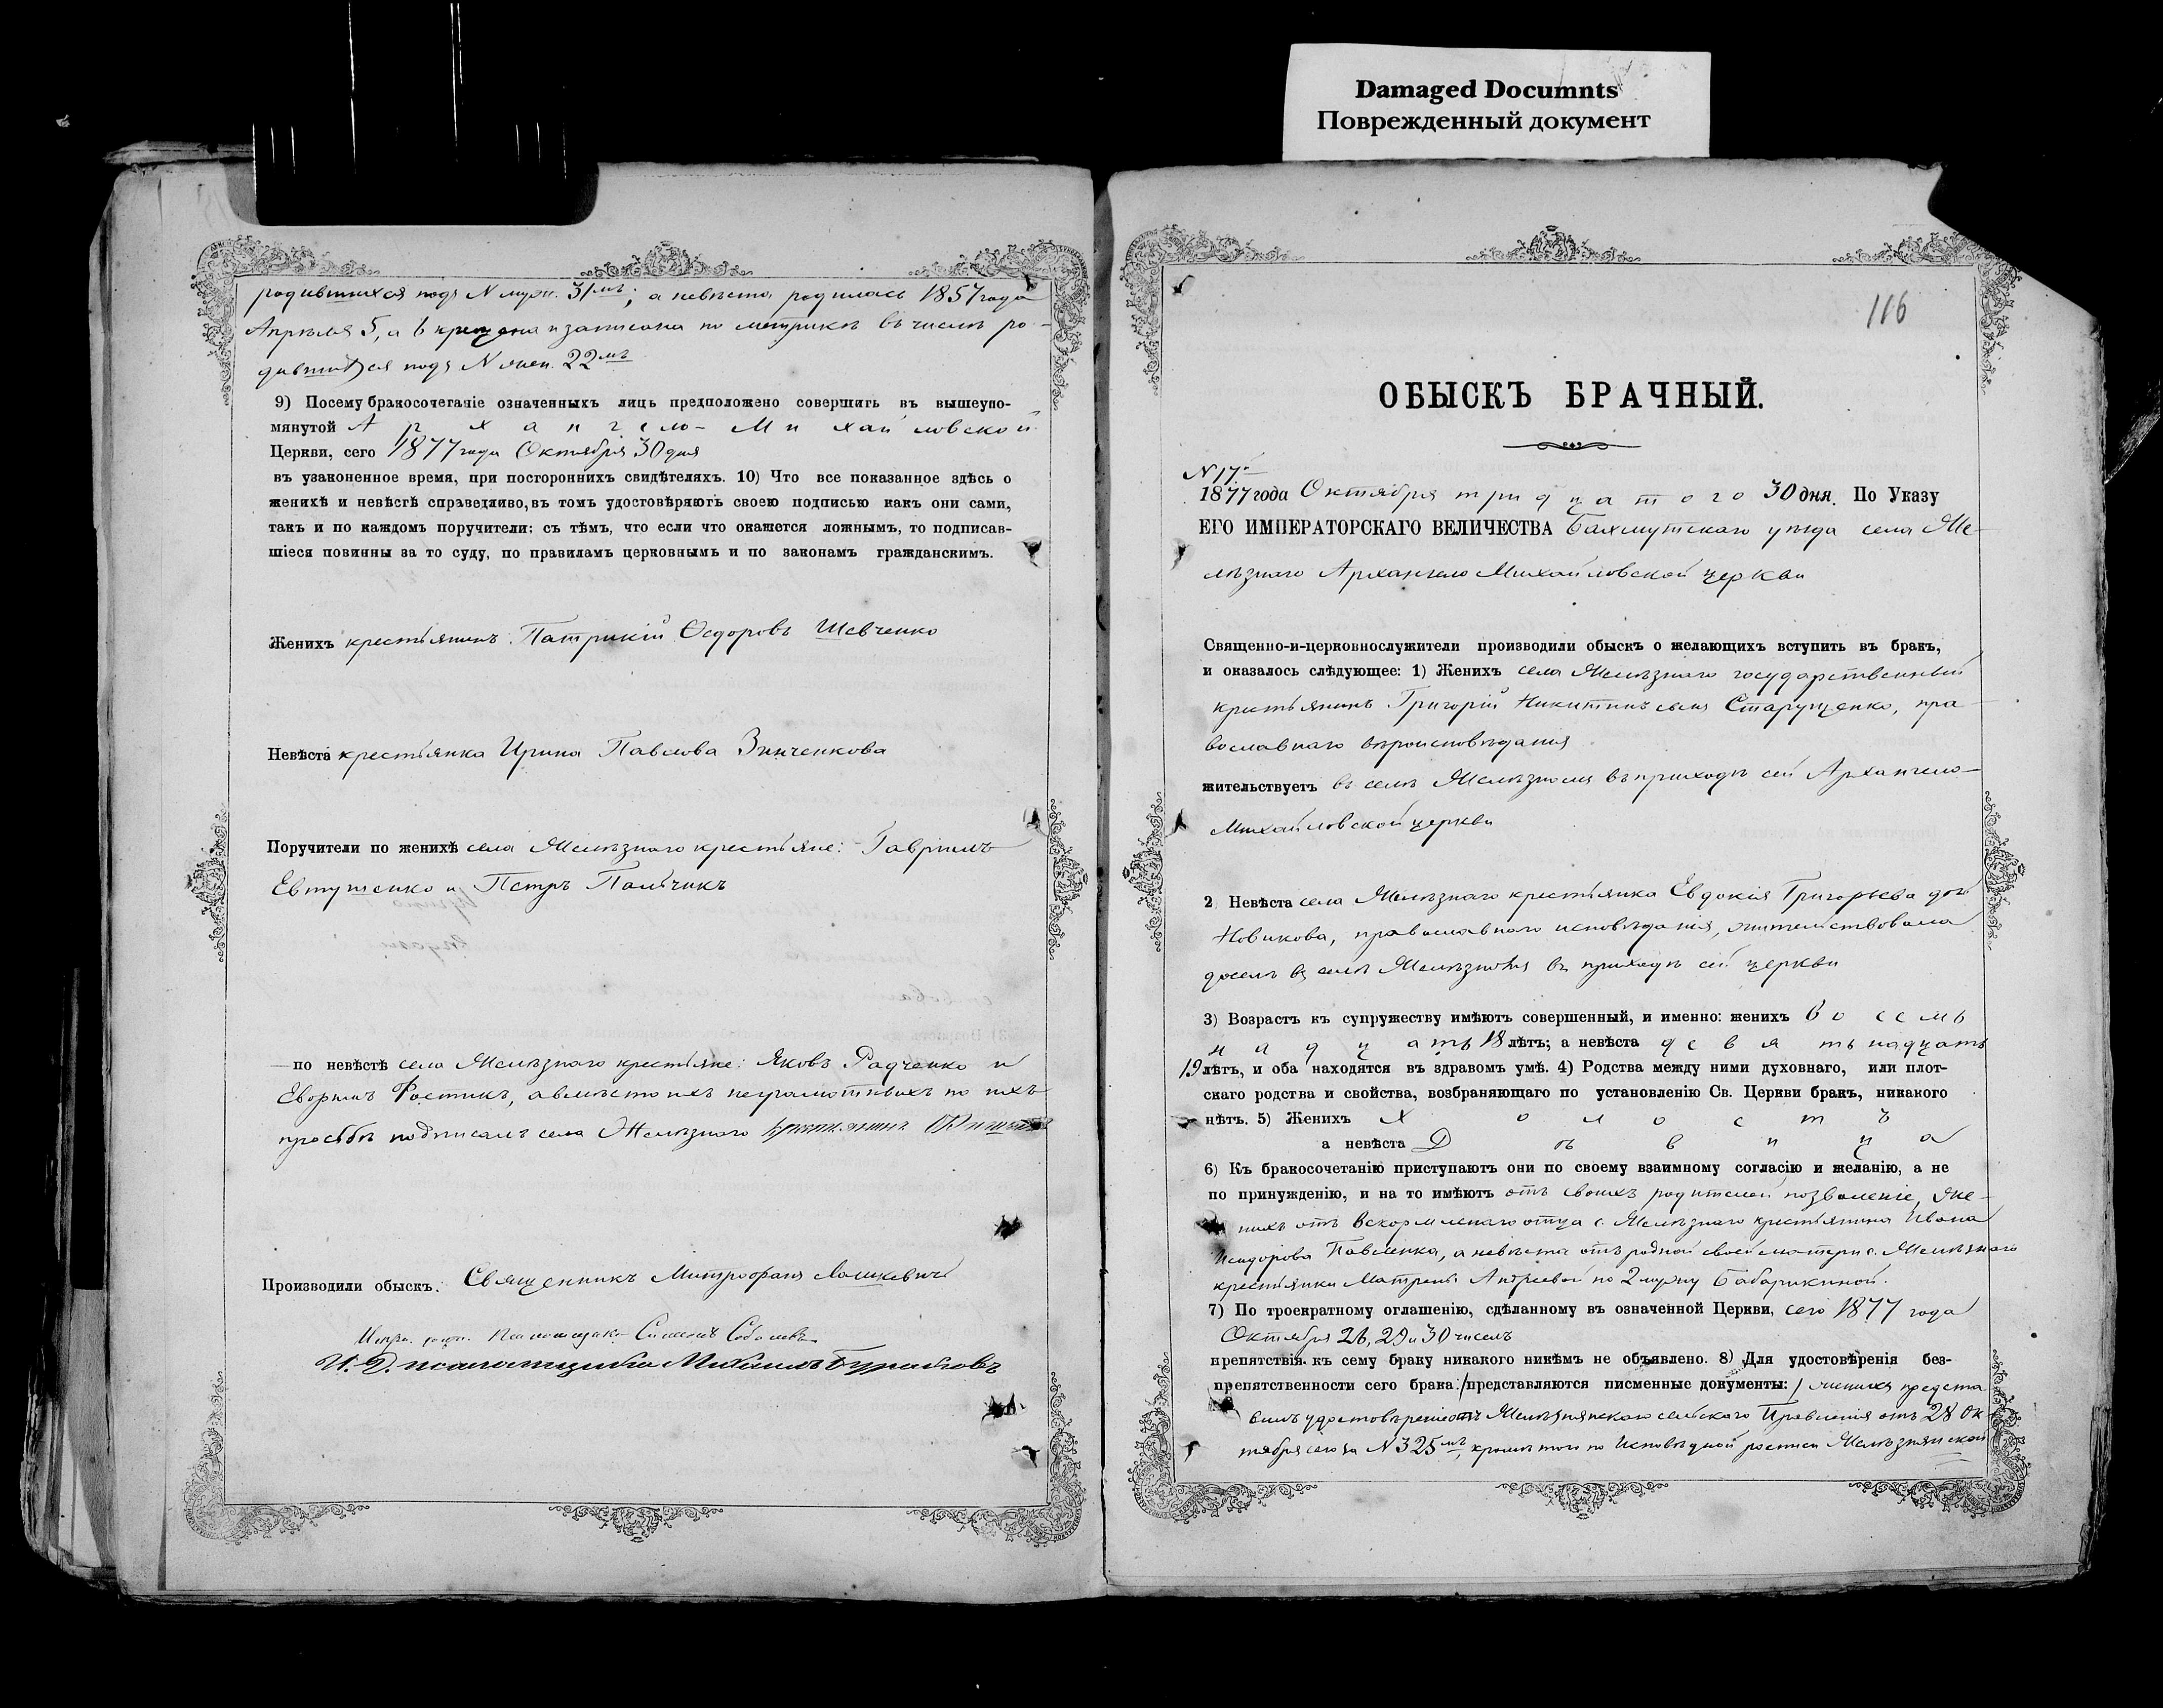 Damaged Documnts
Поврежденный документ
родившихся подъ N мужс. 31мъ; а невѣста родилась 1857 года
Апрѣля 5, а 6 крещена и записана по метрикѣ въ числѣ ро-
дившихся подъ N женс. 22мъ
9) Посему бракосочетаніе означенныхъ лицъ предположено совершить въ вышеупо-
мянутой Архангело-Михайловской
Церкви, сего 1877 года Октября 30 дня
въ узаконенное время, при постороннихъ свидѣтеляхъ. 10) Что все показанное здѣсь о
женихѣ и невѣстѣ справедливо, въ томъ удостовѣряютъ своею подписью какъ они сами,
такъ и по каждомъ поручители; съ тѣмъ, что если что окажется ложнымъ, то подписав-
шіеся повинны за то суду, по правиламъ церковнымъ и по законамъ гражданскимъ.
Женихъ крестьянинъ Патрикій Ѳедоровъ Шевченко
Невѣста крестьянка Ирина Павлова Зинченкова
Поручители по женихѣ села Желѣзнаго крестьяне: Гавріилъ
Евтушенко и Петръ Пальчикъ
— по невѣстѣ села Желѣзнаго крестьяне: Яковъ Радченко и
Фостикъ, а вмѣсто ихъ неграмотныхъ по ихъ
просьбѣ подписалъ села Желѣзнаго
Производили обыскъ: Священникъ Митрофанъ
Симеонъ Соболевъ
И. Д. псаломщика Михаилъ
116
ОБЫСКЪ БРАЧНЫЙ.
N 17.
1877 года Октября тридцатого 30 дня. По Указу
ЕГО ИМПЕРАТОРСКАГО ВЕЛИЧЕСТВА Бахмутскаго уѣзда села Же-
лѣзнаго Архангело Михайловской церкви
Священно-и-церковнослужители производили обыскъ о желающихъ вступить въ бракъ,
и оказалось слѣдующее: 1) Женихъ села Желѣзнаго государственный
крестьянинъ Григорій Никитинъ сынъ Старущенко, пра-
вославнаго вѣроисповѣданія
жительствуетъ въ селѣ Желѣзномъ въ приходѣ сей Архангело-
Михайловской церкви
2 Невѣста села Желѣзнаго крестьянка Евдокія Григорьева дочь
Новикова, православнаго исповѣданія, жительствовала
доселѣ въ селѣ Желѣзномъ въ приходѣ сей церкви
3) Возрастъ къ супружеству имѣютъ совершенный, и именно: женихъ восемь
надцать 18 лѣтъ; а невѣста девятьнадцать
19 лѣтъ, и оба находятся въ здравомъ умѣ. 4) Родства между ними духовнаго, или плот-
скаго родства и свойства, возбраняющаго по установленію Св. Церкви бракъ, никакого
нѣтъ. 5) Женихъ Холостъ
а невѣста Дѣвица
6) Къ бракосочетанію приступаютъ они по своему взаимному согласію и желанію, а не
по принужденію, и на то имѣютъ отъ своихъ родителей позволеніе, же-
нихъ отъ вскормленаго отца с. Желѣзнаго крестьянина Ивана
Исидорова Павленка, а невѣста отъ родной своей матери с. Желѣзнаго
крестьянки Матрены Андреевой по 2 мужу Бабарикиной.
7) По троекратному оглашенію, сдѣланному въ означенной Церкви, сего 1877 года
Октября 26, 29 и 30 числъ
препятствія къ сему браку никакого никѣмъ не объявлено. 8) Для удостовѣренія без-
препятственности сего брака представляются писменные документы: женихъ предста
вилъ удостовѣреніе отъ Желѣзнянскаго сельскаго Правленія отъ 28 Ок
тября сего за N 325мъ, кромѣ того по Исповѣдной росписи Желѣзнянской